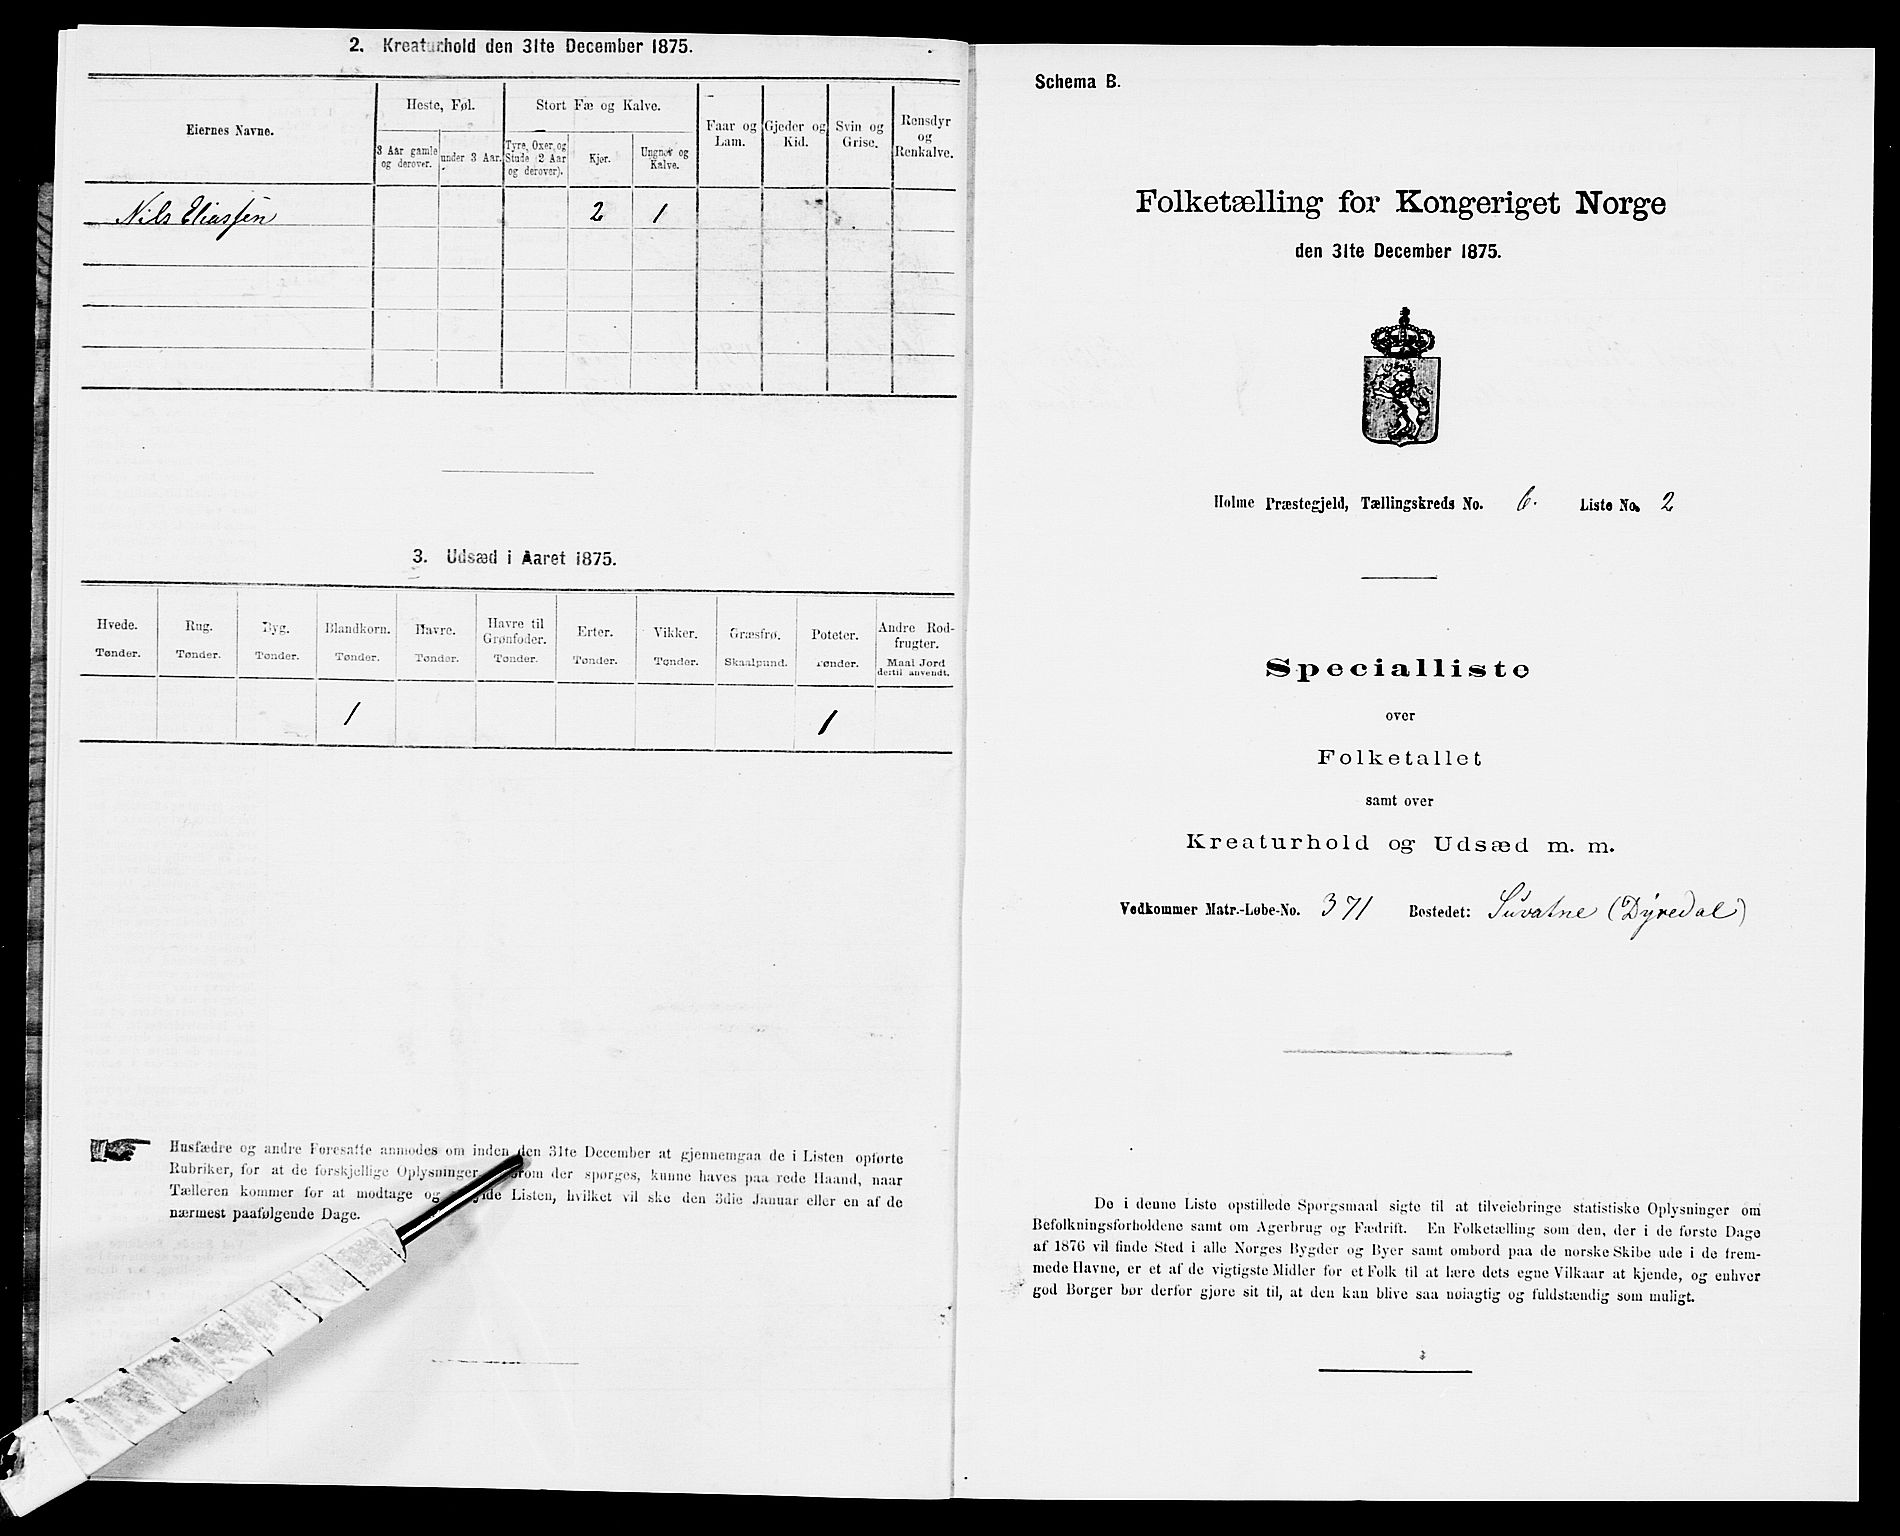 2. Kreaturhold den 31te December 1875.
Eiernes Navne.
Heste, Føl.
3 Aar gamle og derover.
under 3 Aar.
Stort Fæ og Kalve.
Tyre, Oxer og Stude (2 Aar og derover).
Kjør.
Ungnøt og Kalve.
Faar og Lam.
Gjeder og Kid.
Svin og Grise.
Rensdyr og Renkalve.
Nils Eliassen 2 1
3. Udsæd i Aaret 1875.
Hvede. Rug. Byg. Blandkorn. Havre. Havre til Grønfoder. Erter. Vikker. Græsfrø. Poteter. Andre Rodfrugter.
Tønder. Tønder. Tønder. Tønder. Tønder. Tønder. Tønder. Tønder. Skaalpund. Tønder. Maal Jord dertil anvendt.
1 1
Husfædre og andre Foresatte anmodes om inden den 31te December at gjennemgaa de i Listen opførte
Rubriker, for at de forskjellige Oplysninger, der spørges, kunne haves paa rede Haand, naar
Tælleren kommer for at modtage og Listen, hvilket vil ske den 3die Januar eller en af de
nærmest paafølgende Dage.
Schema B.
Folketælling for Kongeriget Norge
den 31te December 1875.
Holme Præstegjeld, Tællingskreds No. 6. Liste No. 2
Specialliste
over
Folketallet
samt over
Kreaturhold og Udsæd m. m.
Vedkommer Matr.-Løbe-No. 371 Bostedet: Suvatne (Dyredal)
De i denne Liste opstillede Spørgsmaal sigte til at tilveiebringe statistiske Oplysninger om
Befolkningsforholdene samt om Agerbrug og Fædrift. En Folketælling som den, der i de første Dage
af 1876 vil finde Sted i alle Norges Bygder og Byer samt ombord paa de norske Skibe ude i de frem-
mede Havne, er et af de vigtigste Midler for et Folk til at lære dets egne Vilkaar at kjende, og enhver
god Borger bør derfor gjøre sit til, at den kan blive saa nøiagtig og fuldstændig som muligt.